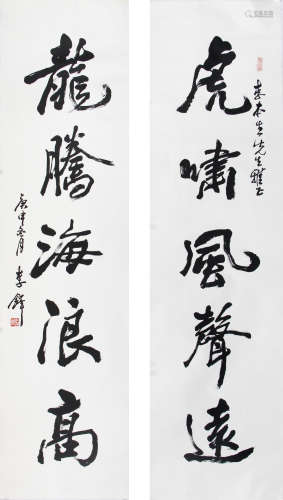 虎嘯風聲遠
龍騰海浪高
李本生先生雅正
庚申冬月 李鐸